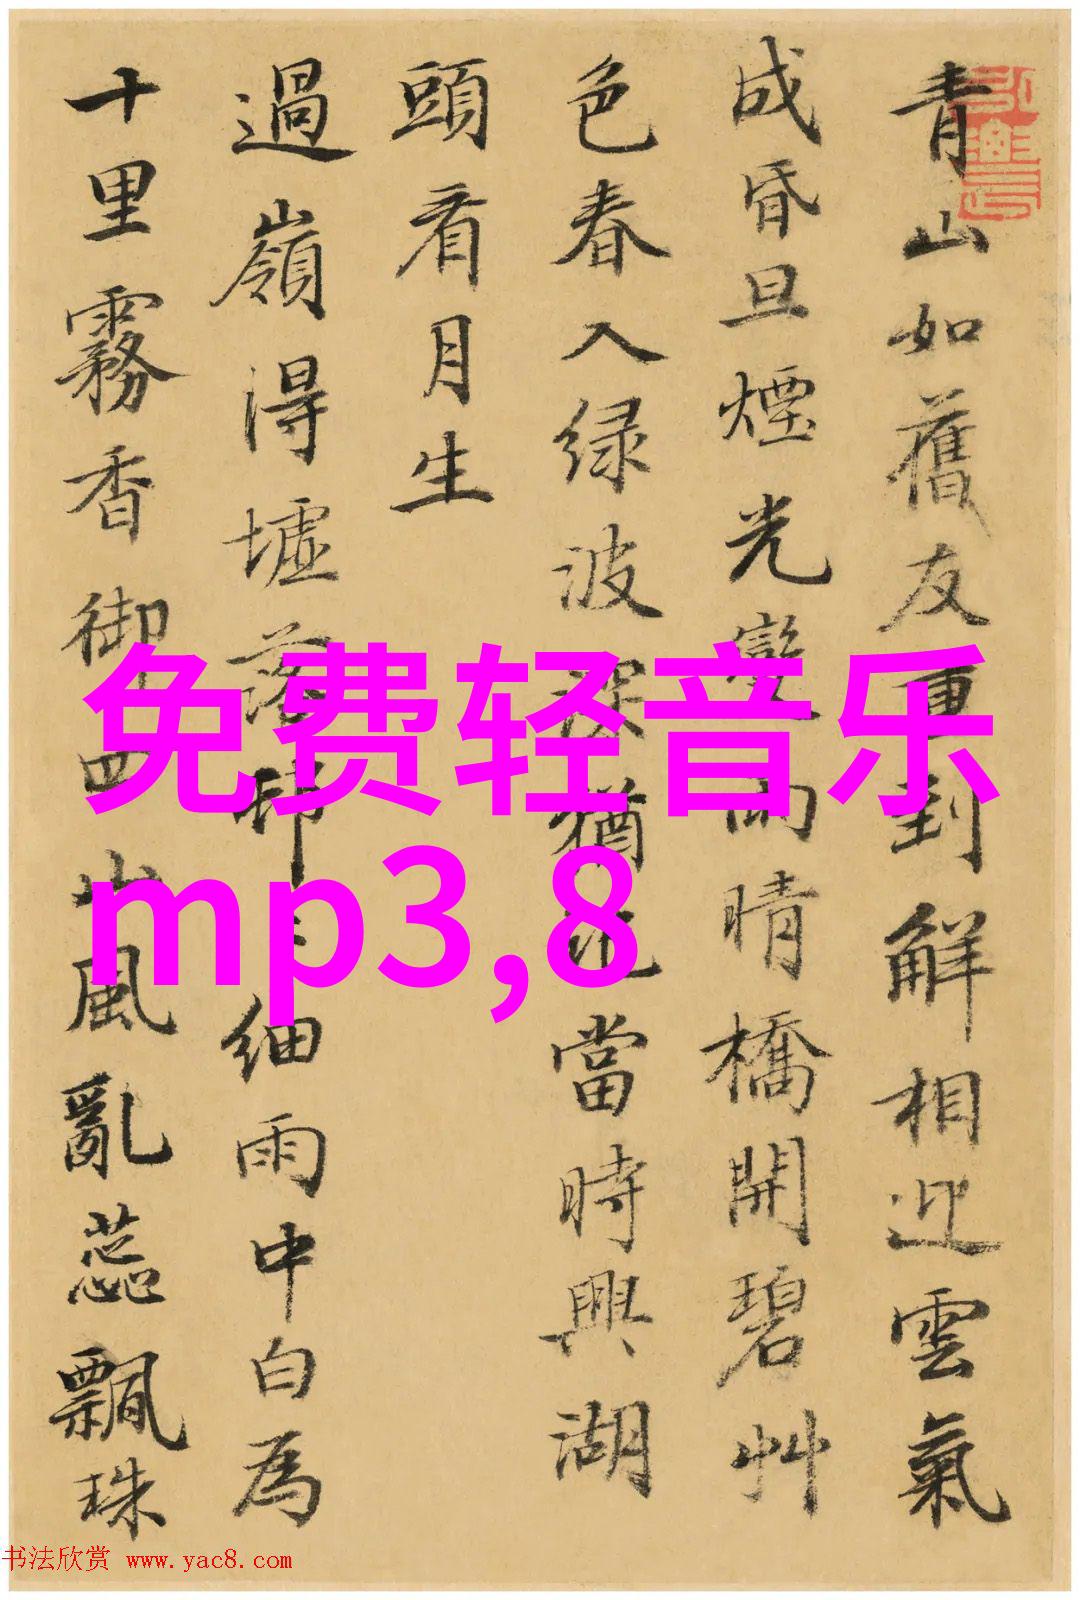 青山如舊友重到解相迎雲氣
成昏旦煙光變雨晴橋開碧艸
色春入绿波猶當時興湖
頭看月生
過嶺得墟落邨細雨中白為
十里霧香御四山風亂蕊飄珠
免费轻音乐
mp3,8
书法欣赏 www.yac8.com